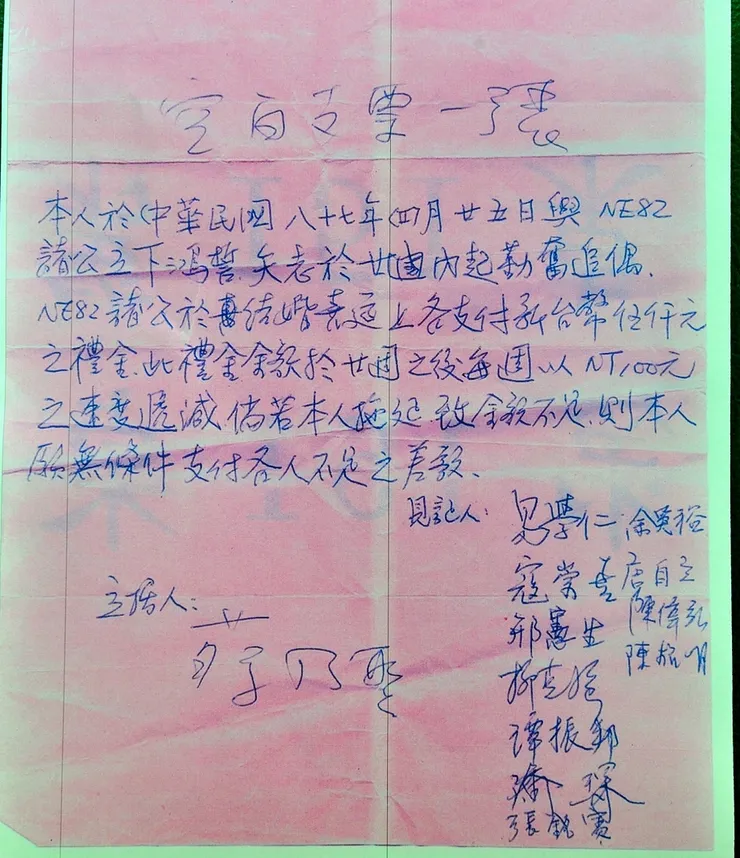 空白支票一張
本人於中華民國八十七年四月廿五日與 NE82
諸公立下誓矢志於廿週內起勤奮追偶、
NE82 諸公於結婚喜筵上各支付新台幣伍仟元
之禮金、此禮金金額於廿週之後每週以 NT,100元
之速度遞減、倘若本人拖延、致金額不足、則本人
願無條件支付各人不足之差額、
見証人: 易學仁 余英裕
寇崇善 唐自立
邢憲生 陳偉弘
陳柏明
立据人:
譚振邦
潘琛
張銘寶